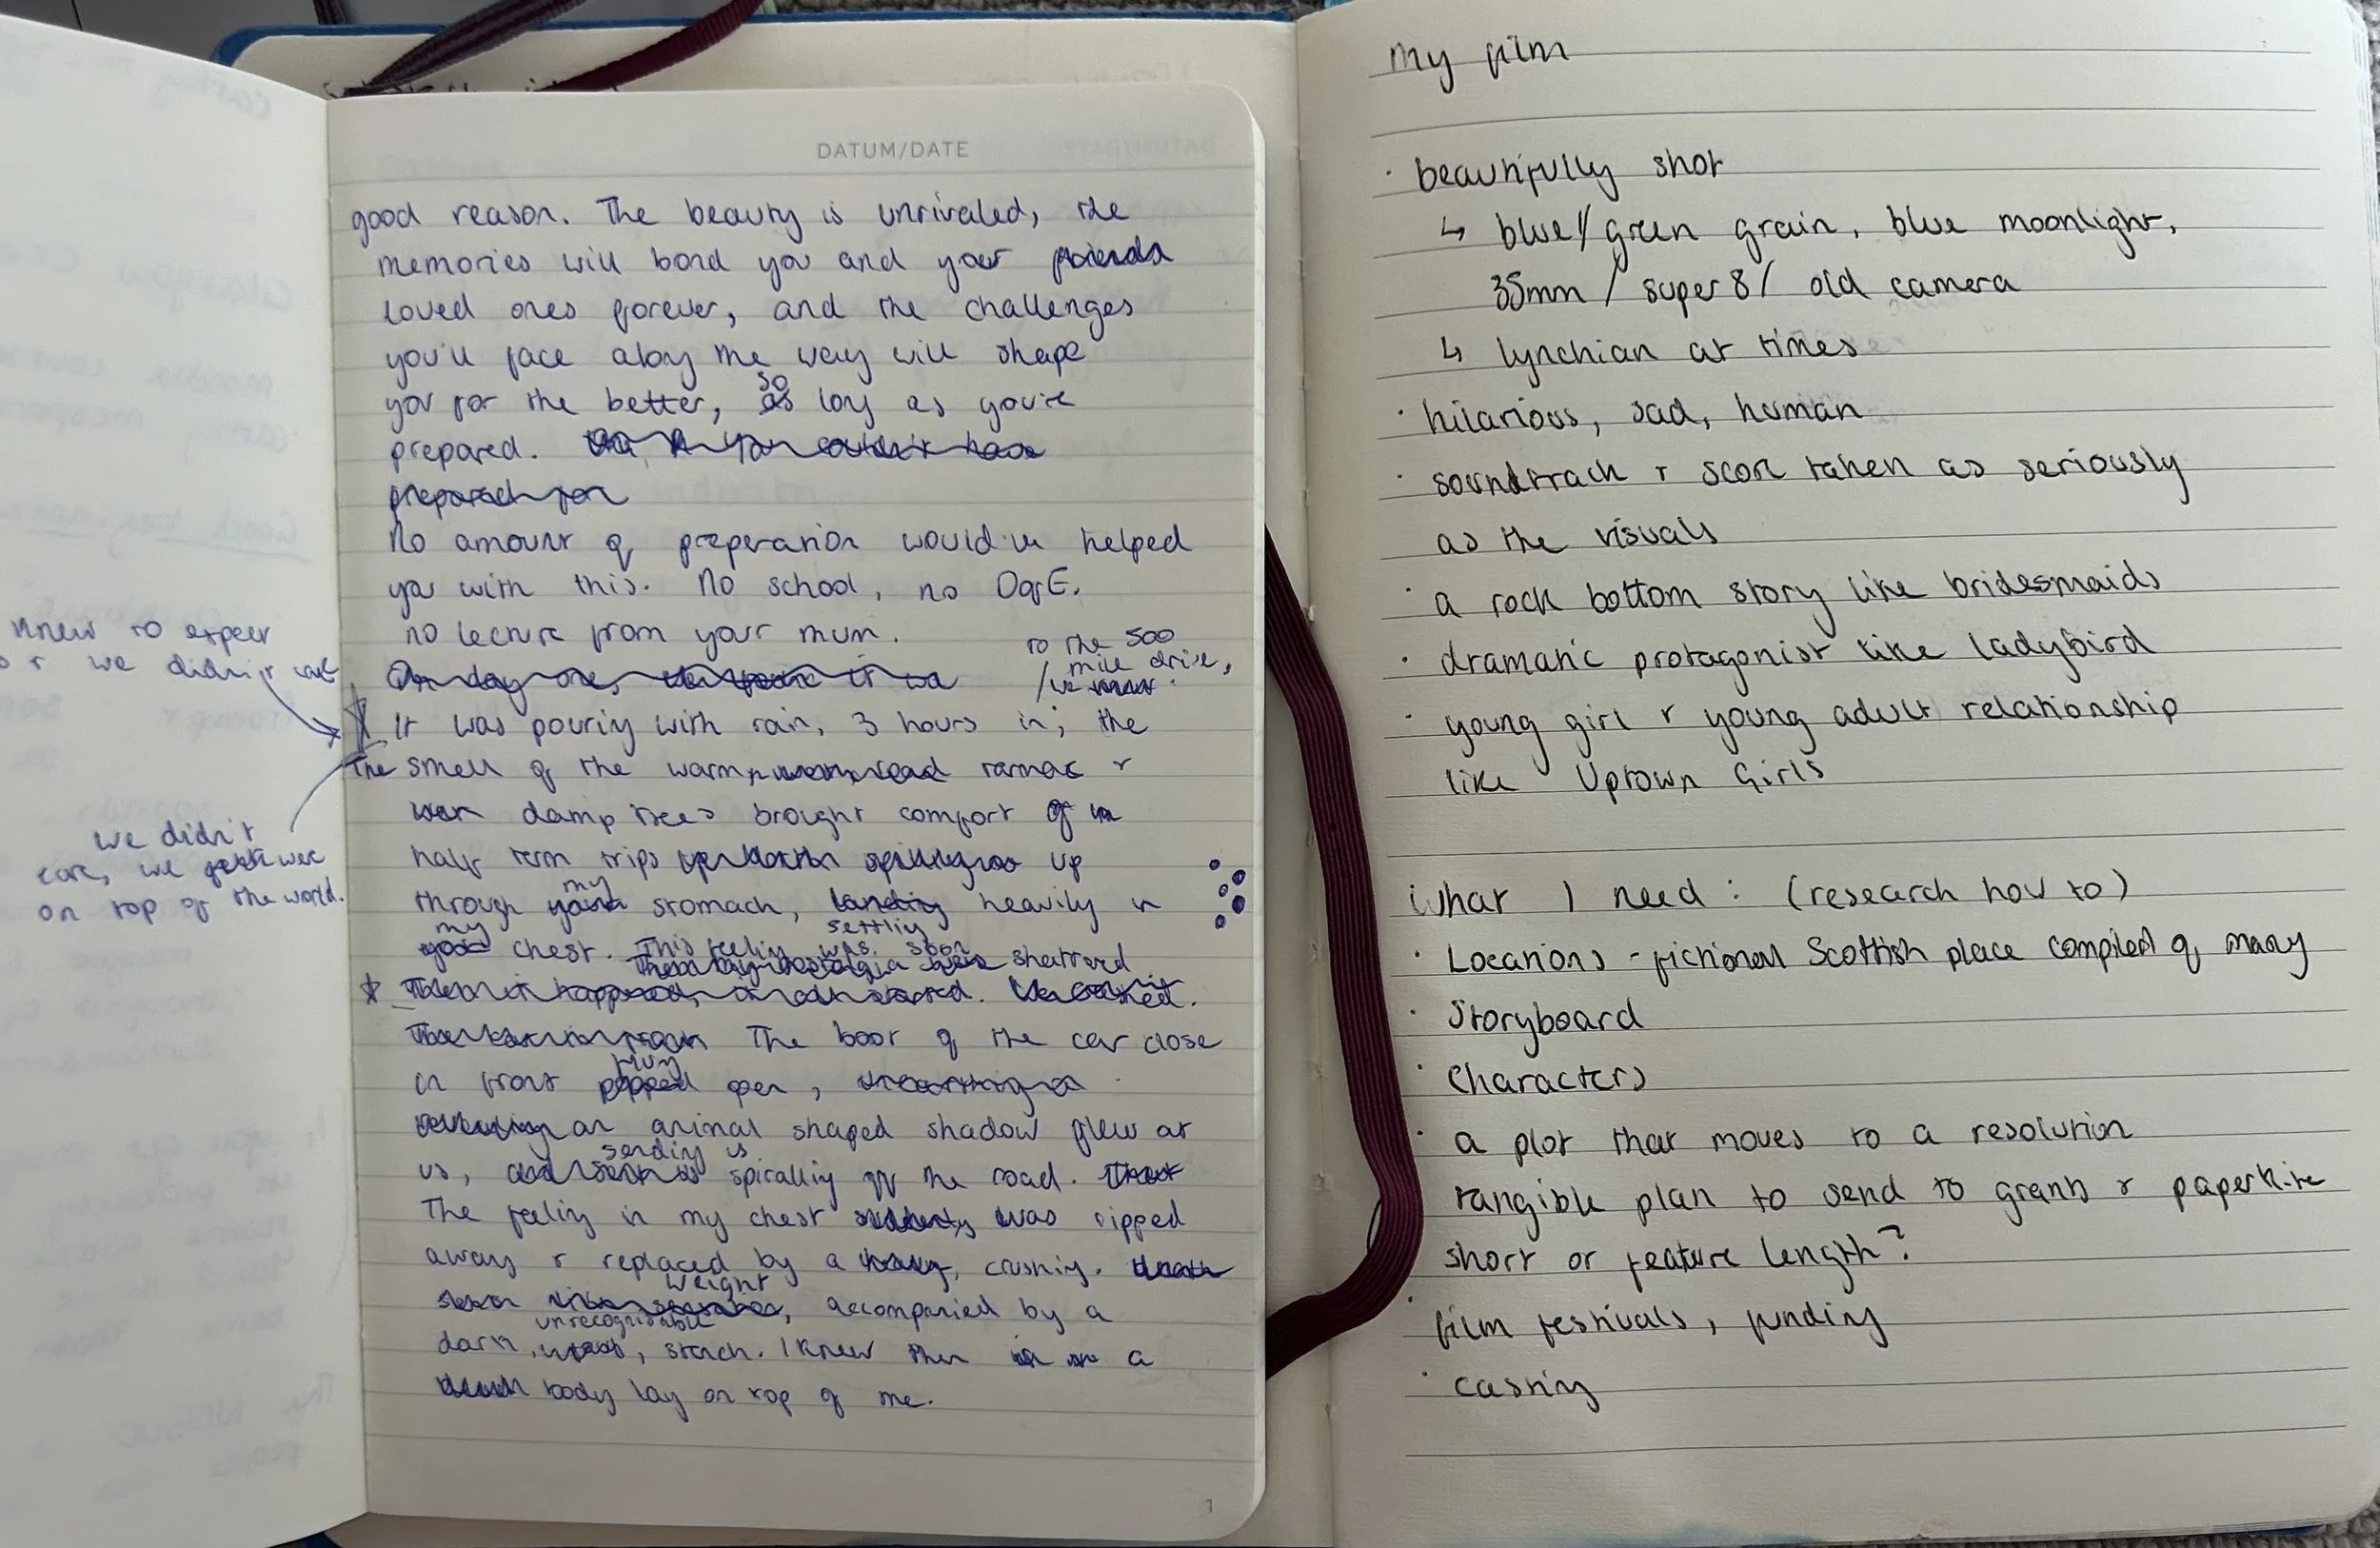 DATUM/DATE
good reason. The beauty is unrivaled, the
memories will bond you and your friends
loved ones forever, and the challenges
you'll face along the way will shape
so
you for the better, as long as you're
prepared. you couldn't have
prepared for
No amount of preparation would've helped
you with this. No school, no DofE,
no lecture from your mum.
to the 500
mile drive,
knew to expect
r we didn't care
On day one, it wa
It was pouring with rain, 3 hours in; the
The smell of the warm, road tarmac r
damp trees brought comfort of
we didn't
care, we felt were
on top of the world.
half term trips up north spilling up
my
through your stomach, landing heavily in
settling
my
your chest. This feeling was soon shattered
nostalgia
Then it happened, started.
The boot of the car close
flung
in front popped open, unearthing a
revealing an animal shaped shadow flew at
sending us
us, and sent us spiralling off the road. That
The feeling in my chest suddenly was ripped
away r replaced by a heavy, crushing. death
weight
accompanied by a
unrecognisable
dark, stench. I knew then a
body lay on top of me.
1
my film
· beautifully shot
↳ blue//green grain, blue moonlight,
35mm / super 8 / old camera
↳ lynchian at times
· hilarious, sad, human
· soundtrack r score taken as seriously
as the visuals
· a rock bottom story like bridesmaids
· dramatic protagonist like ladybird
· young girl r young adult relationship
like Uptown Girls
What I need: (research how to)
· Locations - fictional Scottish place compiled of many
· Storyboard
· Characters
· a plot that moves to a resolution
tangible plan to send to grants r paperkite
short or feature length?
· film festivals, funding
· casting